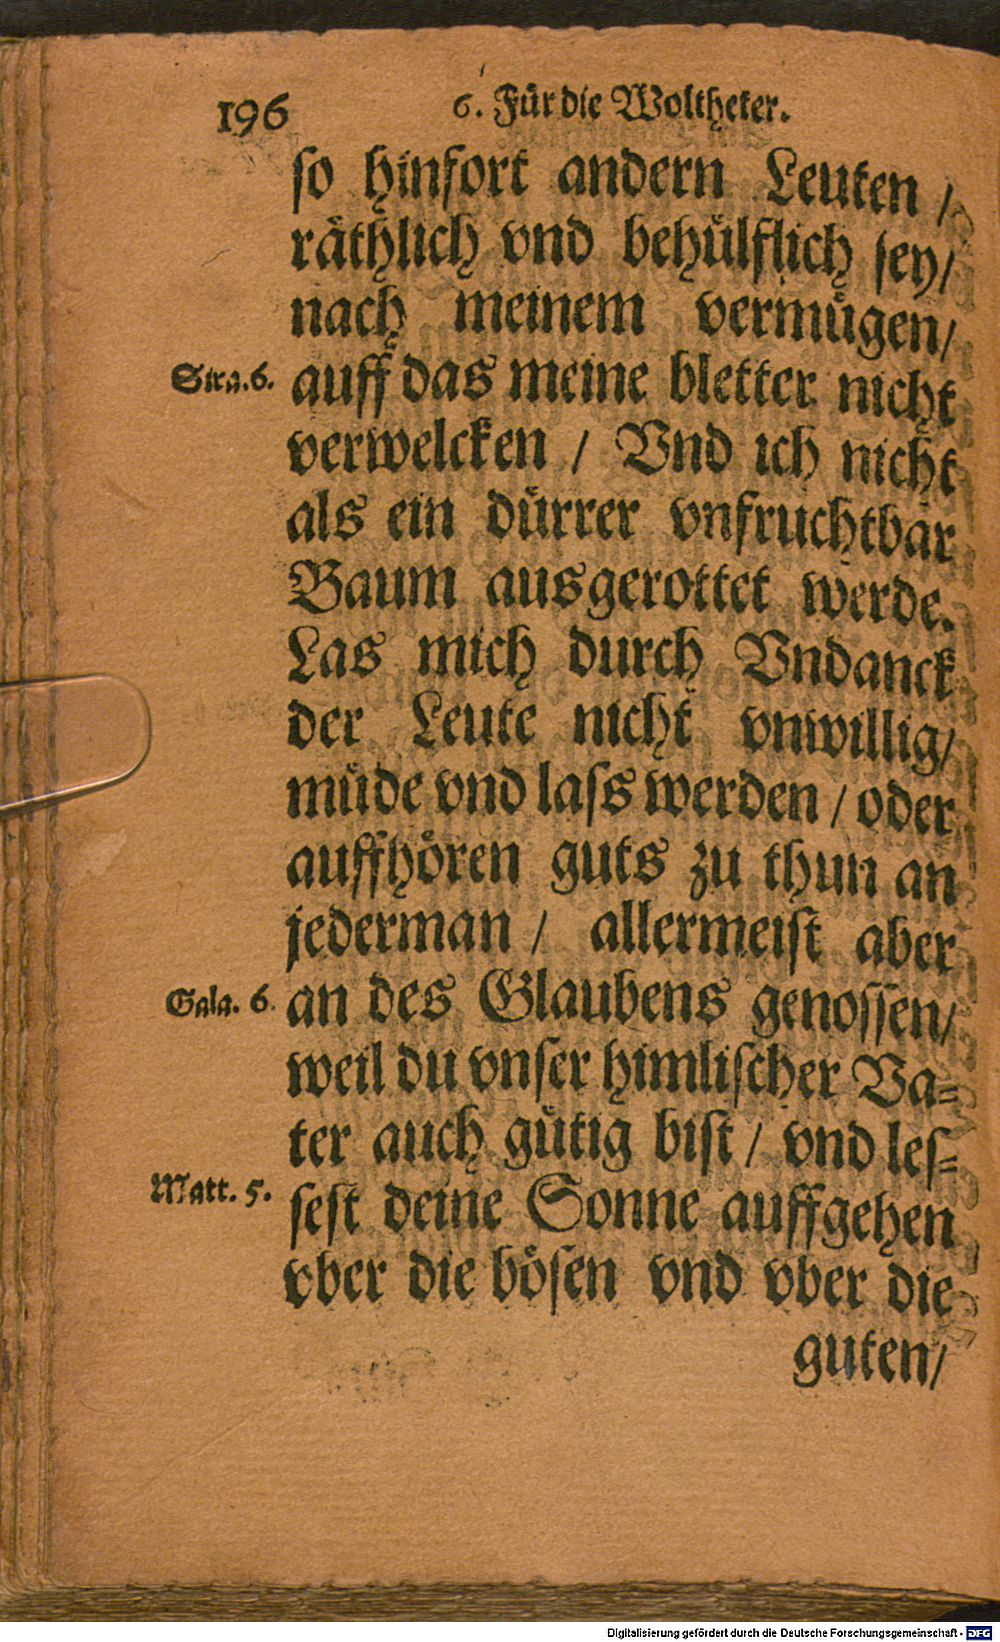 196
6. Für die Woltheter.
so hinfort andern Leuten /
räthlich vnd behülflich sey/
nach meinem vermügen/
Sira. 6.
auff das meine bletter nicht
verwelcken / Vnd ich nicht
als ein dürrer vnfruchtbar
Baum ausgerottet werde.
Las mich durch Vndanck
der Leute nicht vnwillig/
müde vnd lass werden / oder
auffhören guts zu thun an
jederman / allermeist aber
Gala. 6.
an des Glaubens genossen/
weil du vnser himlischer Va=
ter auch gütig bist / vnd les=
Matt. 5.
sest deine Sonne auffgehen
vber die bösen vnd vber die
guten/
Digitalisierung gefördert durch die Deutsche Forschungsgemeinschaft - DFG